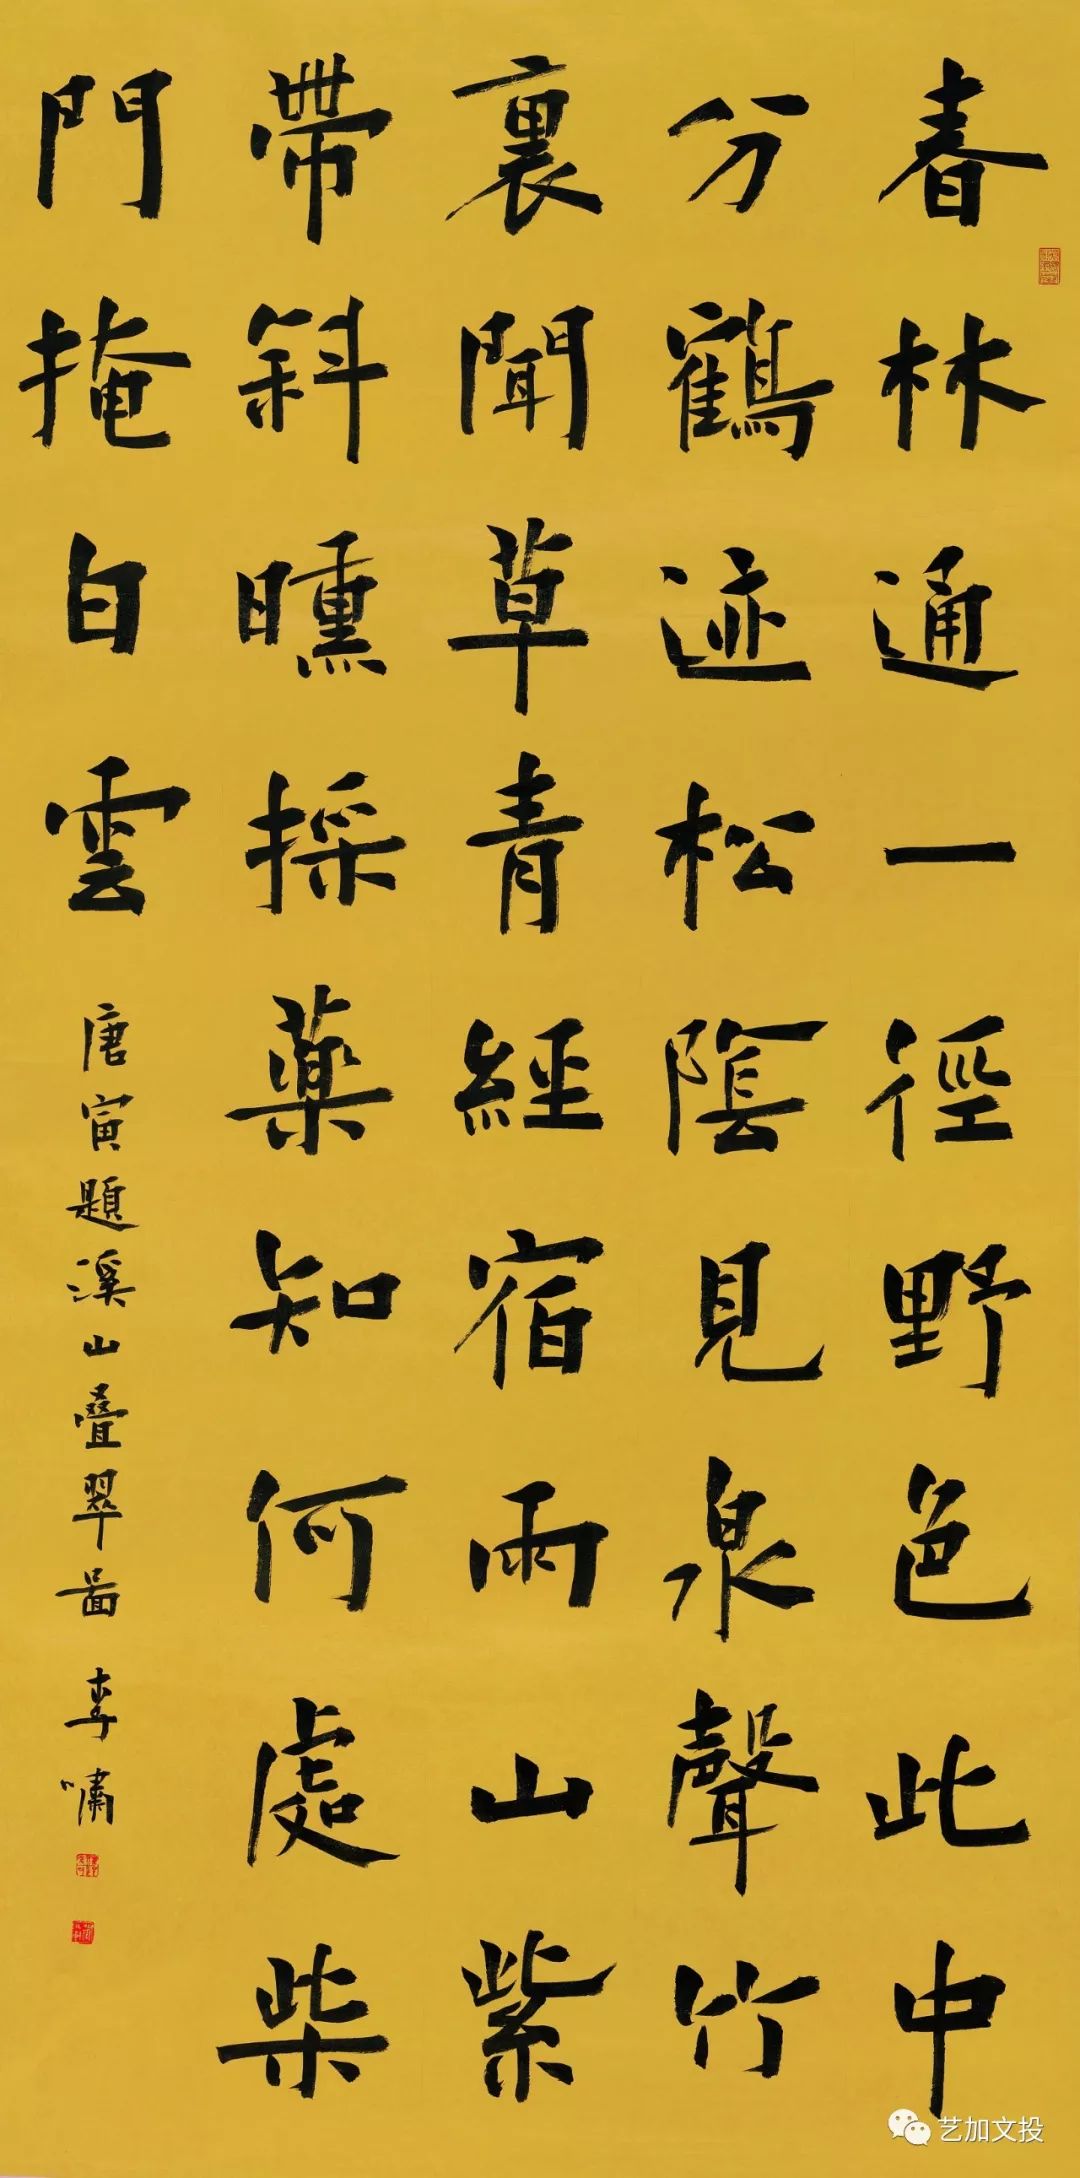 春林通一徑野色此中
分鶴迹松陰見泉聲竹
裏聞草青經宿雨山紫
帶斜曛採藥知何處柴
門掩白雲
唐寅題溪山叠翠啚 李嘯
艺加文投